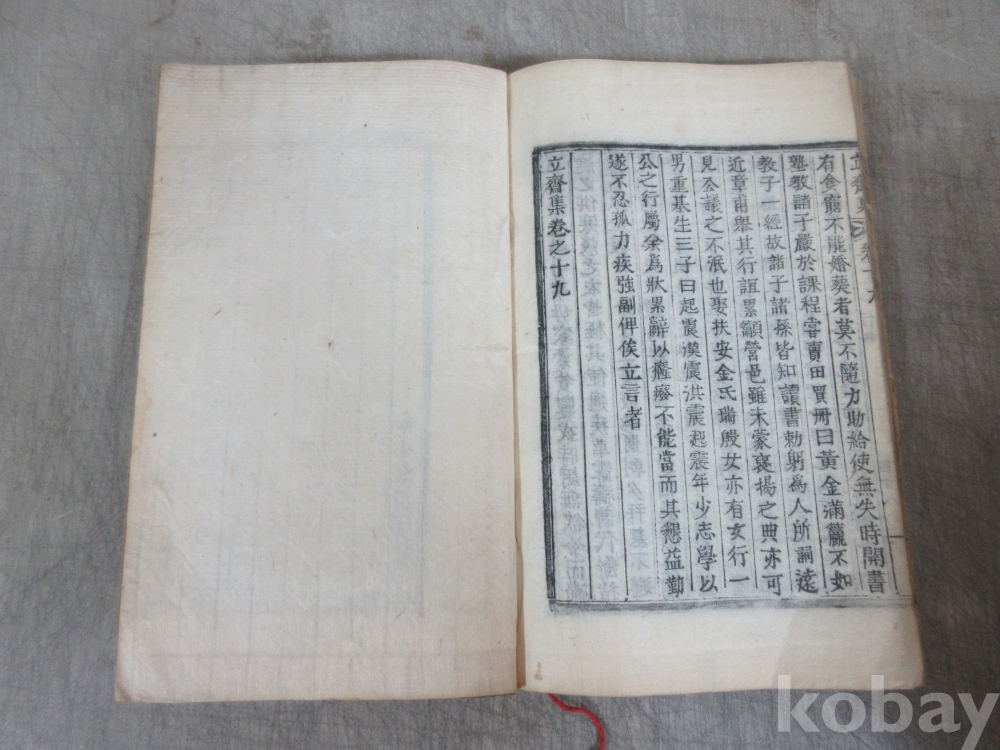 有貧窮不能婚葬者莫不隨力助給使無失時開書
塾教諸子嚴於課程嘗賣田買冊曰黃金滿籯不如
教子一經故諸子諸孫皆知讀書勅躬爲人所詞遠
近章甫擧其行誼累籲營邑雖未蒙褒揚之典亦可
見公議之不泯也娶扶安金氏瑞殷女亦有女行一
男重基生三子曰起震漢震洪震起震年少志學以
公之行屬余爲狀累辭以癃癈不能當而其懇益勤
遂不忍孤力疾強副俾俟立言者
立齋集卷之十九
kobay